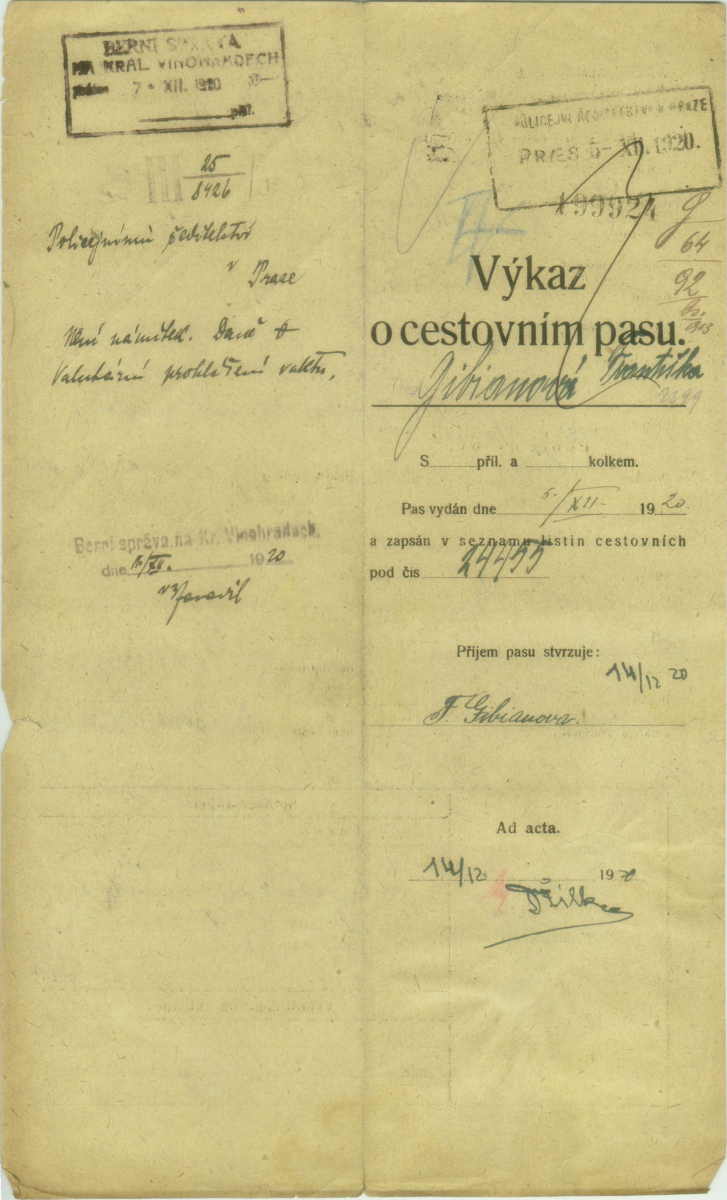 BERNÍ SPRÁVA
NA KRÁL. VINOHRADECH
7 - XII. 1920
příl.
25
8426
Policejnímu ředitelství
v
Praze
Není námitek. Daně
Valutární prohlášení
Berní správa na Kr. Vinohradech.
dne XII. 1920
POLICEJNÍ ŘEDITELSTVÍ V PRAZE
PRAES 5- XII. 1920.
64
92
Výkaz
o cestovním pasu.
Gibianová Františka
S příl. a kolkem.
Pas vydán dne 5./XII. 1920.
a zapsán v seznamu listin cestovních
pod čís 24455
Příjem pasu stvrzuje:
14/12 20
F Gibianova.
Ad acta.
14/12. 1920